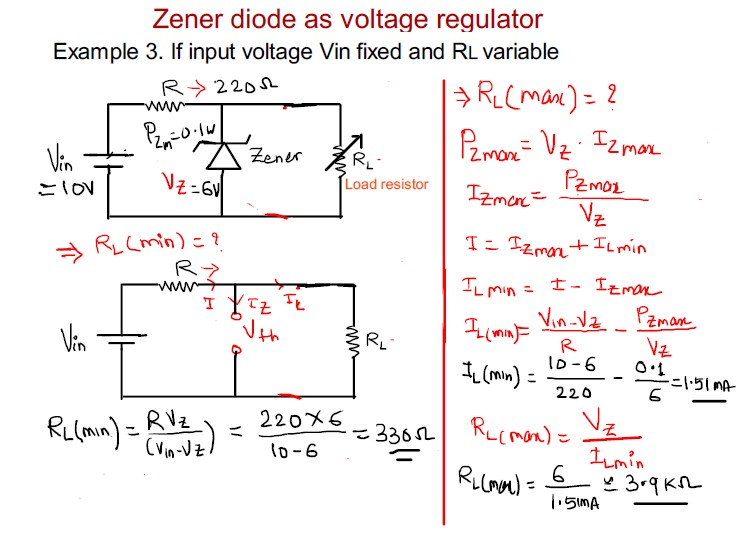 Zener diode as voltage regulator
Example 3. If input voltage Vin fixed and RL variable
R → 220Ω
Pzm=0.1W
Vin
= 10V
Zener
VZ = 6V
RL
Load resistor
⇒ RL(min) = ?
R →
I IZ IL
Vin
Vth
RL
RL(min) = RVZ/(Vin-VZ) = 220×6/10-6 = 330Ω
⇒ RL(max) = ?
PZmax = VZ · IZmax
IZmax = PZmax/VZ
I = IZmax + ILmin
ILmin = I - IZmax
IL(min) = Vin-VZ/R - PZmax/VZ
IL(min) = 10-6/220 - 0.1/6 = 1.51mA
RL(max) = VZ/ILmin
RL(max) = 6/1.51mA ≅ 3.9KΩ